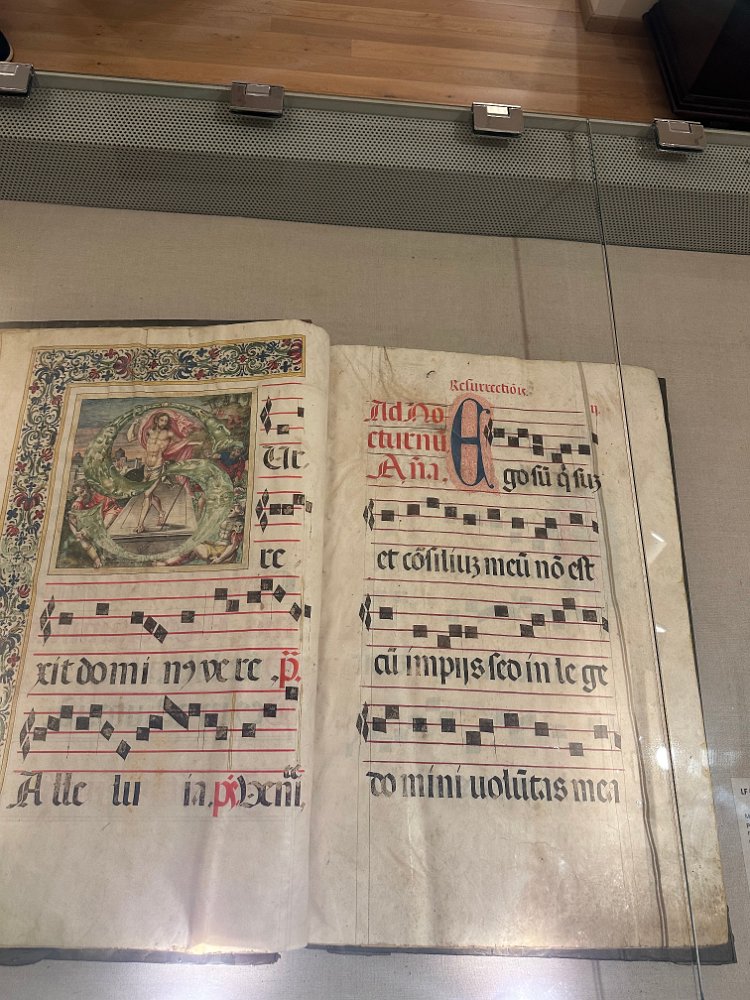 S
Ur
re
xit domi nꝰ ve re .p̄.
A lle lu ia. ps̄ Veni̅.
Resurrectiōis.
ij.
Ad No
cturnū
Añ̃a.
E
go sū q̇ sūʒ
et cōsiliuʒ meū nō est
cū impijs sed in le ge
do mini uolūtas mea
LF